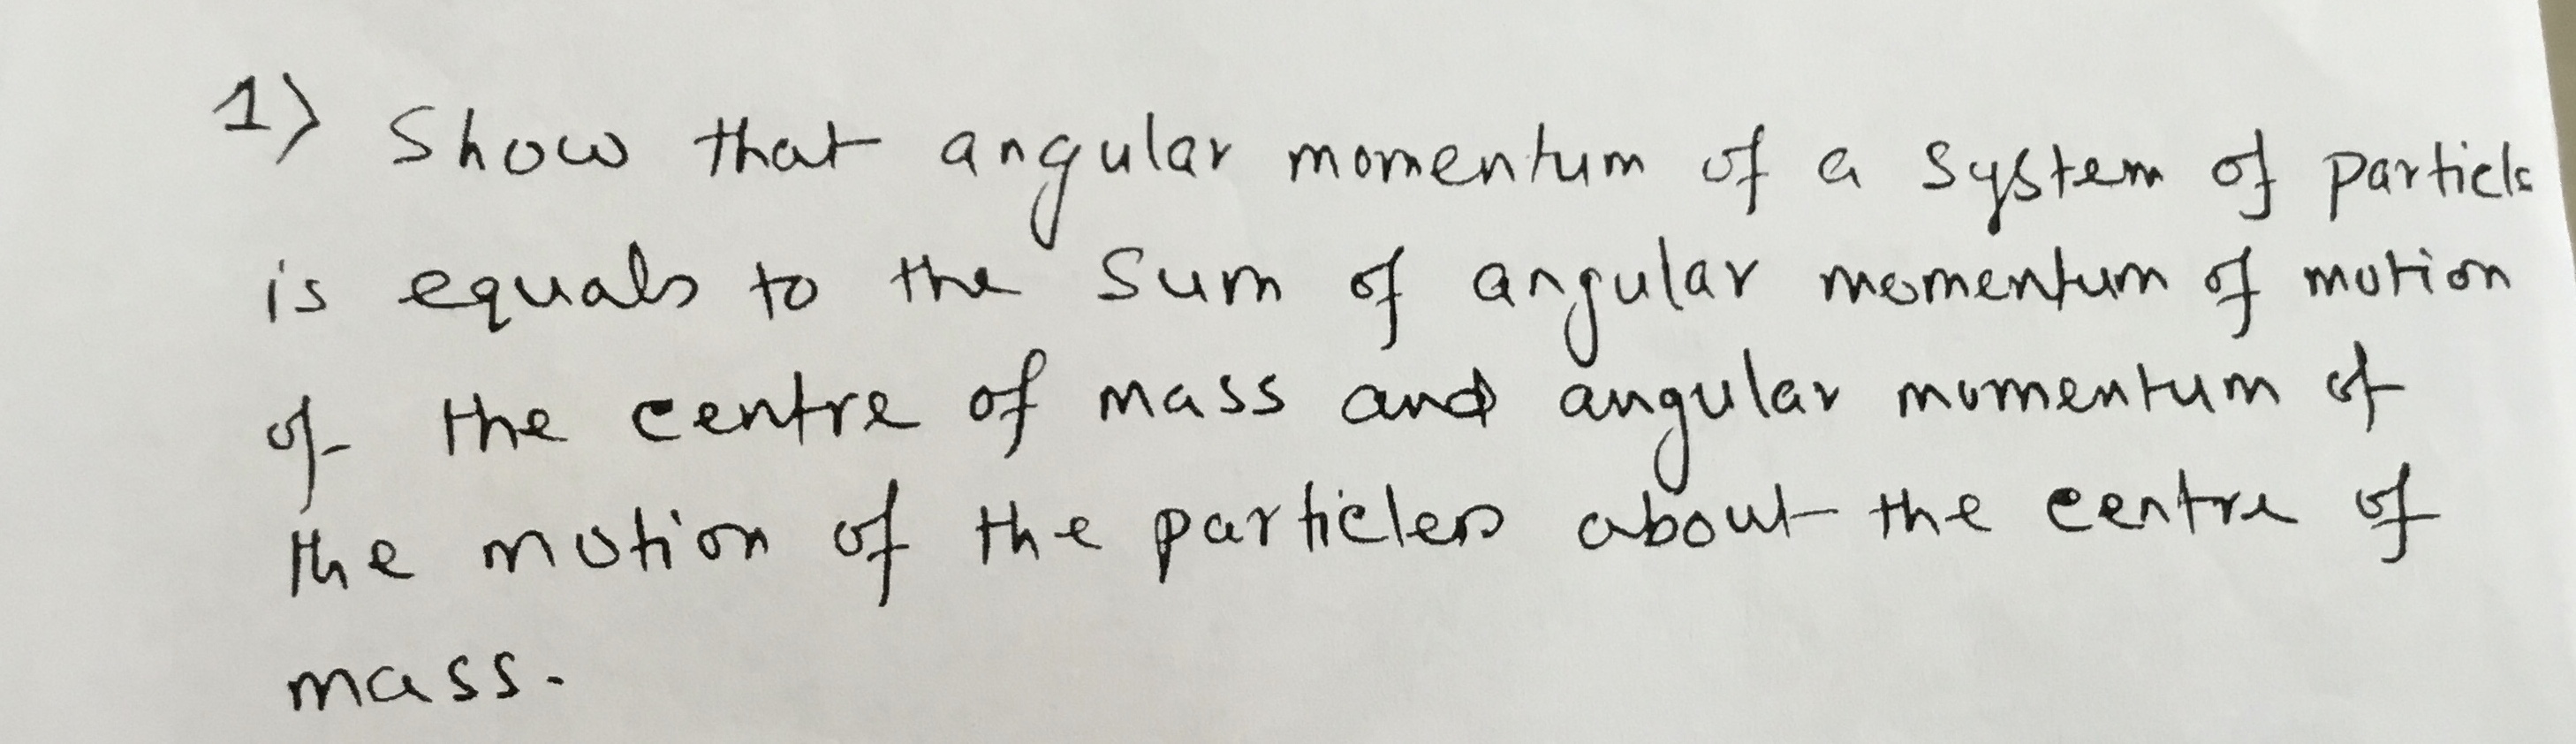 1) Show that angular momentum of a system of particls
is equals to the sum of angular momentum of motion
of the centre of mass and angular momentum of
the motion of the particles about the centre of
mass.